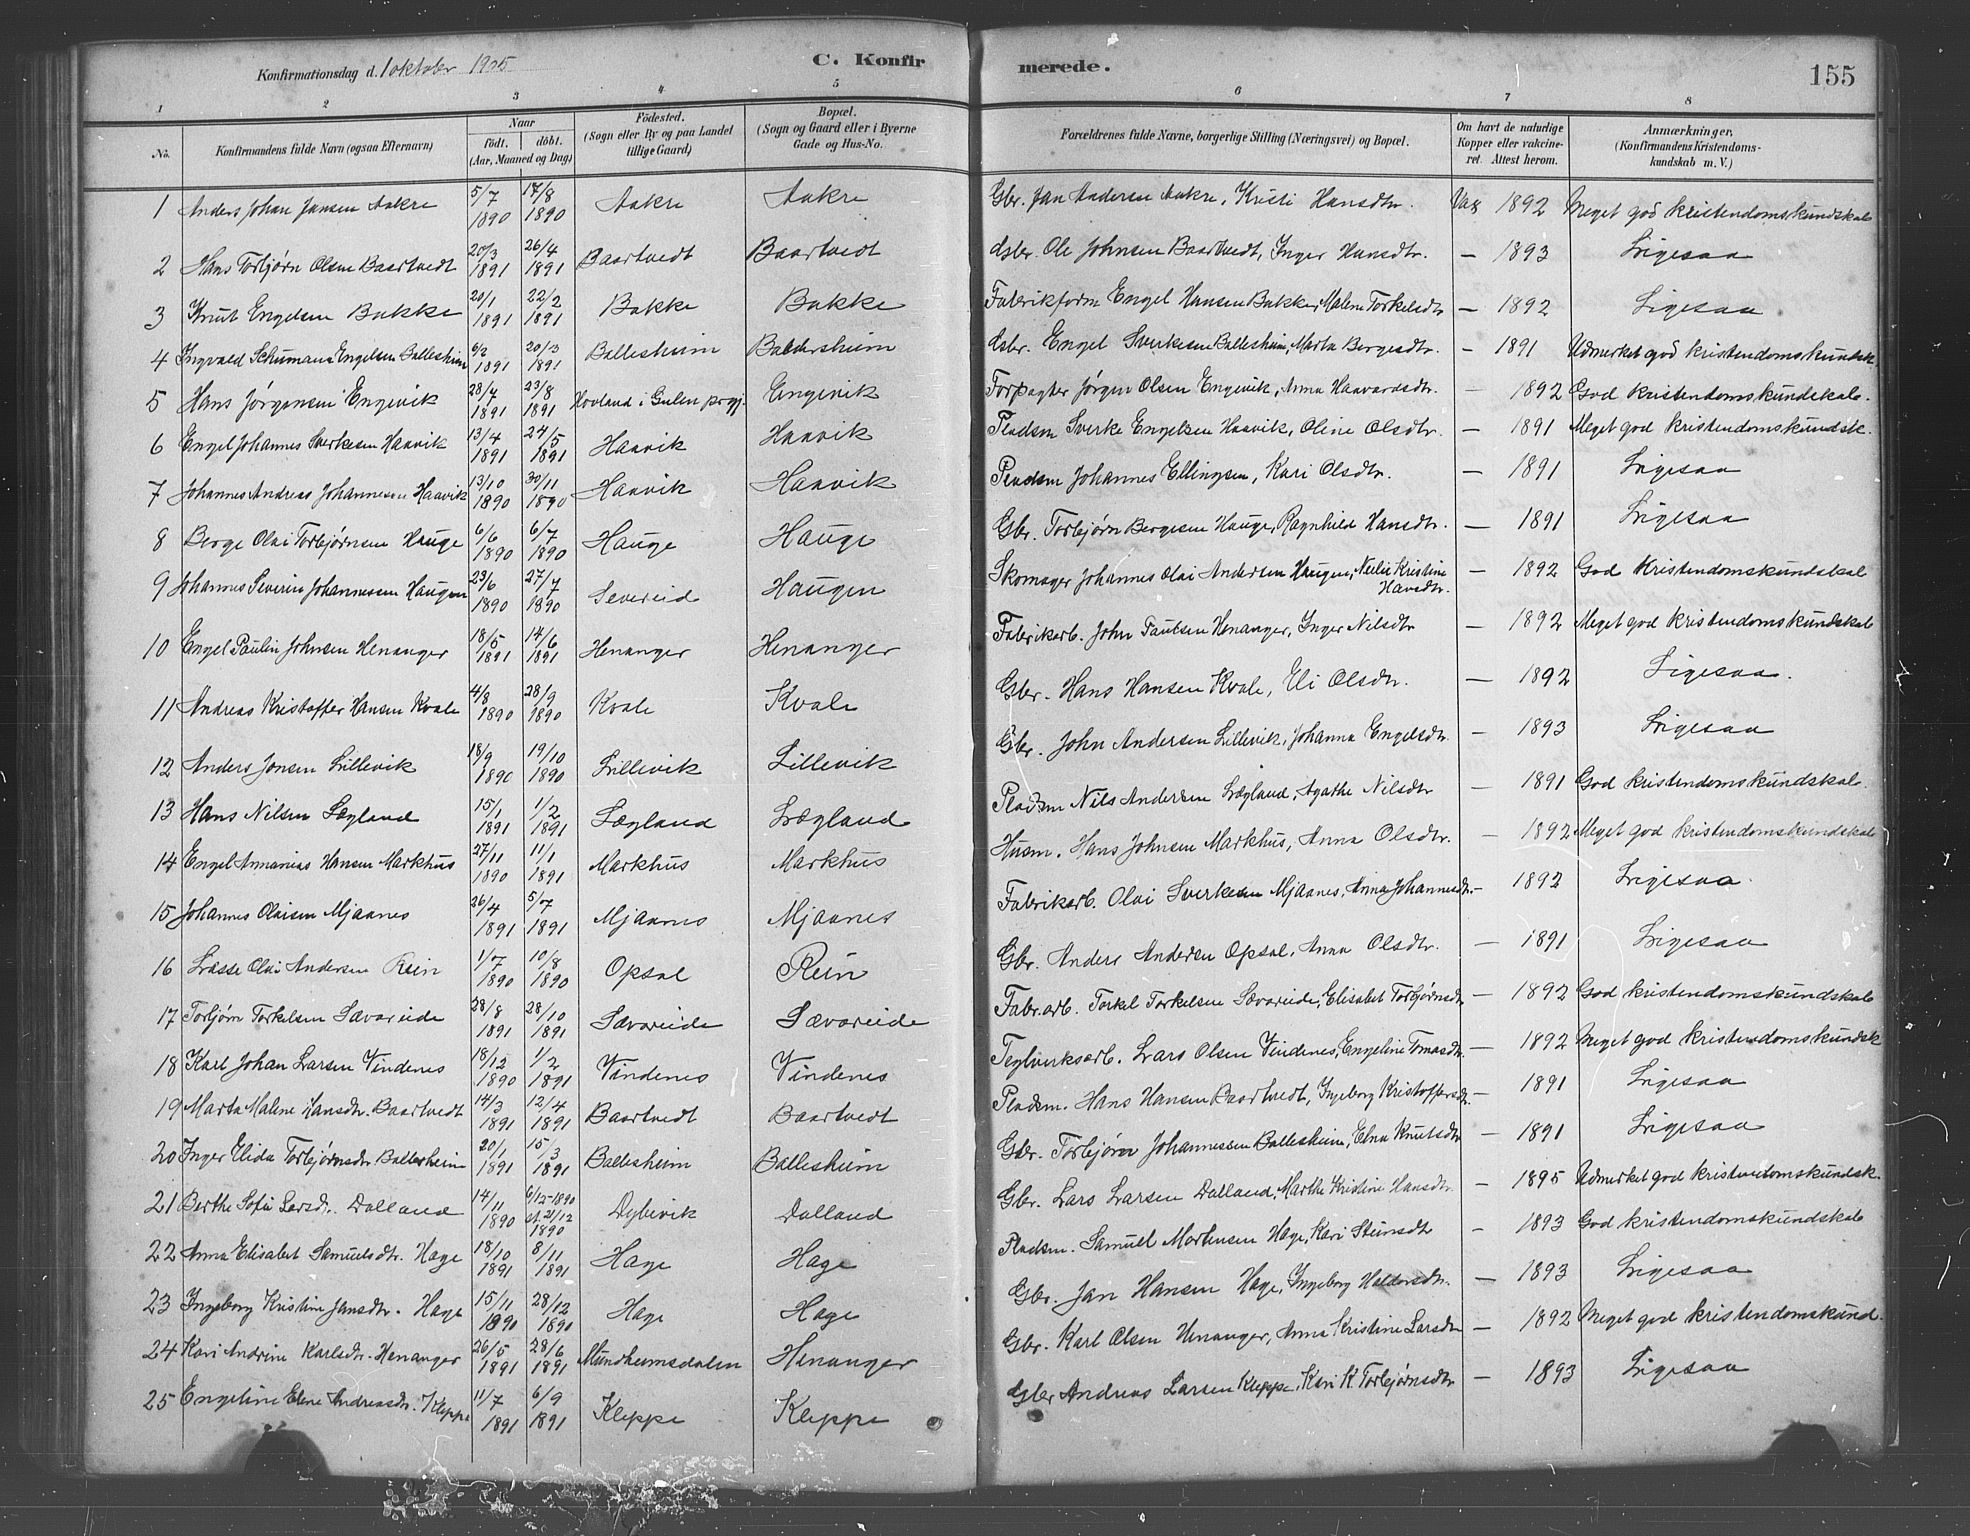 Konfirmationsdag d. 1 oktober 1905 C. Konfirmerede. 155
1 2 3 4 5 6 7 8
No. Konfirmandens fulde Navn (ogsaa Efternavn) Naar födt. döbt. (Aar, Maaned og Dag) Födested. (Sogn eller By og paa Landet tillige Gaard) Bopæl. (Sogn og Gaard eller i Byerne Gade og Hus-No. Forældrenes fulde Navne, borgerlige Stilling (Næringsvei) og Bopæl. Om havt de naturlige Kopper eller vakcineret. Attest herom. Anmærkninger. (Konfirmandens Kristendomskundskab m. V.)
1 Anders Johan Jansen Aakre 5/7 1890 17/8 1890 Aakre Aakre Gbr. Jan Andersen Aakre, Kristi Hansdtr. Vax 1892 Meget god kristendomskundskab
2 Hans Torbjørn Olsen Baartvedt 20/3 1891 26/4 1891 Baartvedt Baartvedt Gbr. Ole Johnsen Baartvedt, Inger Hansdtr. — 1893 Ligesaa
3 Knut Engelsen Bakke 20/1 1891 22/2 1891 Bakke Bakke Fabrikform Engel Hansen Bakke, Malene Torkelsdtr — 1892 Ligesaa
4 Ingvald Schumann Engelsen Ballesheim 6/2 1891 20/3 1891 Ballesheim Baldersheim Gbr. Engel Sverkesen Ballesheim, Marta Bergesdtr. — 1891 Udmerket god kristendomskundsk
5 Hans Jørgensen Engevik 28/4 1891 23/8 1891 Hovland i Gulen prgj. Engevik Forpagter Jørgen Olsen Engevik, Anna Haavardsdtr. — 1892 God kristendomskundskab.
6 Engel Johannes Sverkesen Haavik 13/4 1891 24/5 1891 Haavik Haavik Pladsm Sverke Engelsen Haavik, Oline Olsdtr. — 1891 Meget god kristendomskundsk.
7 Johannes Andreas Johannesen Haavik 13/10 1890 30/11 1890 Haavik Haavik Pladsm Johannes Ellingsen, Kari Olsdtr. — 1891 Ligesaa
8 Berge Olai Torbjørnsen Hauge 6/6 1890 6/7 1890 Hauge Hauge Gbr. Torbjørn Bergesen Hauge, Ragnhild Hansdtr. — 1891 Ligesaa
9 Johannes Severin Johannessen Haugen 23/6 1890 27/7 1890 Severeid Haugen Skomager Johannes Olai Andersen Haugen, Neelie Kristine Hansdtr. — 1892 God kristendomskundskab
10 Engel Paulin Johnsen Henanger 18/5 1891 14/6 1891 Henanger Henanger Fabrikarb. John Paulsen Henanger, Inger Nilsdtr — 1892 Meget god kristendomskundskab
11 Andreas Kristoffer Hansen Kvale 4/8 1890 28/9 1890 Kvale Kvale Gbr. Hans Hansen Kvale, Eli Olsdtr. — 1892 Ligesaa.
12 Anders Jonsen Lillevik 18/9 1890 19/10 1890 Lillevik Lillevik Gbr. John Andersen Lillevik, Johanna Engelsdtr. — 1893 Ligesaa
13 Hans Nilsen Lægland 15/1 1891 1/2 1891 Lægland Lægland Pladsm Nils Andersen Lægland, Agathe Nilsdtr — 1891 God kristendomskundskab.
14 Engel Annanias Hansen Markhus 27/11 1890 11/1 1891 Markhus Markhus Husm. Hans Johnsen Markhus, Anna Olsdtr. — 1892 Meget god kristendomskundskab
15 Johannes Olaisen Mjaanes 26/4 1891 5/7 1891 Mjaanes Mjaanes Fabrikarb. Olai Sverkesen Mjaanes, Anna Johannesdtr. — 1892 Ligesaa.
16 Lasse Olai Andersen Rein 1/7 1890 10/8 1890 Opsal Rein Gbr. Anders Andersen Opsal, Anna Olsdtr. — 1891 Ligesaa
17 Torbjørn Torkelsen Sævareide 28/8 1891 28/10 1891 Sævareide Sævareide Fabr.arb. Torkel Torkelsen Sævareide, Elisabet Torbjørnsdtr — 1892 God kristendomskundskab
18 Karl Johan Larsen Vindenes 18/12 1890 1/2 1891 Vindenes Vindenes Teglverksarb. Lars Olsen Vindenes, Engeline Tomasdtr. — 1892 Meget god kristendomskundsk
19 Marta Malene Hansdtr. Baartvedt 14/3 1891 12/4 1891 Baartvedt Baartvedt Pladsm. Hans Hansen Baartvedt, Ingeborg Kristoffersdtr. — 1891 Ligesaa
20 Inger Elida Torbjørnsdtr Ballesheim 20/1 1891 15/3 1891 Ballesheim Ballesheim Gbr. Torbjørn Johannessen Ballesheim, Elna Knutsdtr — 1891 Ligesaa
21 Berthe Sofie Larsdr. Dalland 14/11 1890 6/12-1890 st. 21/12 1890 Dybevik Dalland Gbr. Lars Larsen Dalland, Marthe Kristine Hansdtr. — 1895 Udmerket god kristendomskundsk.
22 Anna Elisabet Samuelsdtr. Hage 18/10 1891 8/11 1891 Hage Hage Pladsm. Samuel Mortensen Hage, Kari Steinsdtr — 1893 God kristendomskundskab
23 Ingeborg Kristine Jansdtr. Hage 15/11 1890 28/12 1890 Hage Hage Gbr. Jan Hansen Hage, Ingeborg Haldorsdtr. — 1893 Ligesaa
24 Kari Andrine Karlsdtr. Henanger 26/5 1891 28/6 1891 Mundheimsdalen Henanger Gbr. Karl Olsen Henanger, Anna Kristine Larsdtr — 1892 Meget god kristendomskund.
25 Engeline Elene Andreasdtr. Kleppe 11/7 1891 6/9 1891 Kleppe Kleppe Gbr Andreas Larsen Kleppe, Kari K. Torbjørnsdtr — 1893 Ligesaa